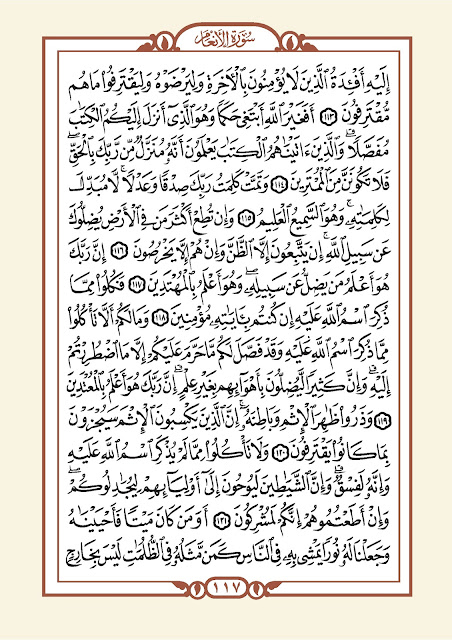 سُورَةُ الأَنْعَامِ
إِلَيْهِ أَفْـِٔدَةُ ٱلَّذِينَ لَا يُؤْمِنُونَ بِٱلْأَخِرَةِ وَلِيَرْضَوْهُ وَلِيَقْتَرِفُوا۟ مَا هُم
مُّقْتَرِفُونَ ١١٣ أَفَغَيْرَ ٱللَّهِ أَبْتَغِى حَكَمًا وَهُوَ ٱلَّذِىٓ أَنزَلَ إِلَيْكُمُ ٱلْكِتَٰبَ
مُفَصَّلًا ۚ وَٱلَّذِينَ ءَاتَيْنَٰهُمُ ٱلْكِتَٰبَ يَعْلَمُونَ أَنَّهُۥ مُنَزَّلٌ مِّن رَّبِّكَ بِٱلْحَقِّ ۖ
فَلَا تَكُونَنَّ مِنَ ٱلْمُمْتَرِينَ ١١٤ وَتَمَّتْ كَلِمَتُ رَبِّكَ صِدْقًا وَعَدْلًا ۚ لَّا مُبَدِّلَ
لِكَلِمَٰتِهِۦ ۚ وَهُوَ ٱلسَّمِيعُ ٱلْعَلِيمُ ١١٥ وَإِن تُطِعْ أَكْثَرَ مَن فِى ٱلْأَرْضِ يُضِلُّوكَ
عَن سَبِيلِ ٱللَّهِ ۚ إِن يَتَّبِعُونَ إِلَّا ٱلظَّنَّ وَإِنْ هُمْ إِلَّا يَخْرُصُونَ ١١٦ إِنَّ رَبَّكَ
هُوَ أَعْلَمُ مَن يَضِلُّ عَن سَبِيلِهِۦ ۖ وَهُوَ أَعْلَمُ بِٱلْمُهْتَدِينَ ١١٧ فَكُلُوا۟ مِمَّا
ذُكِرَ ٱسْمُ ٱللَّهِ عَلَيْهِ إِن كُنتُم بِـَٔايَٰتِهِۦ مُؤْمِنِينَ ١١٨ وَمَا لَكُمْ أَلَّا تَأْكُلُوا۟
مِمَّا ذُكِرَ ٱسْمُ ٱللَّهِ عَلَيْهِ وَقَدْ فَصَّلَ لَكُم مَّا حَرَّمَ عَلَيْكُمْ إِلَّا مَا ٱضْطُرِرْتُمْ
إِلَيْهِ ۗ وَإِنَّ كَثِيرًا لَّيُضِلُّونَ بِأَهْوَآئِهِم بِغَيْرِ عِلْمٍ ۗ إِنَّ رَبَّكَ هُوَ أَعْلَمُ بِٱلْمُعْتَدِينَ
١١٩ وَذَرُوا۟ ظَٰهِرَ ٱلْإِثْمِ وَبَاطِنَهُۥٓ ۚ إِنَّ ٱلَّذِينَ يَكْسِبُونَ ٱلْإِثْمَ سَيُجْزَوْنَ
بِمَا كَانُوا۟ يَقْتَرِفُونَ ١٢٠ وَلَا تَأْكُلُوا۟ مِمَّا لَمْ يُذْكَرِ ٱسْمُ ٱللَّهِ عَلَيْهِ
وَإِنَّهُۥ لَفِسْقٌ ۗ وَإِنَّ ٱلشَّيَٰطِينَ لَيُوحُونَ إِلَىٰٓ أَوْلِيَآئِهِمْ لِيُجَٰدِلُوكُمْ ۖ
وَإِنْ أَطَعْتُمُوهُمْ إِنَّكُمْ لَمُشْرِكُونَ ١٢١ أَوَمَن كَانَ مَيْتًا فَأَحْيَيْنَٰهُ
وَجَعَلْنَا لَهُۥ نُورًا يَمْشِى بِهِۦ فِى ٱلنَّاسِ كَمَن مَّثَلُهُۥ فِى ٱلظُّلُمَٰتِ لَيْسَ بِخَارِجٍ
١١٧